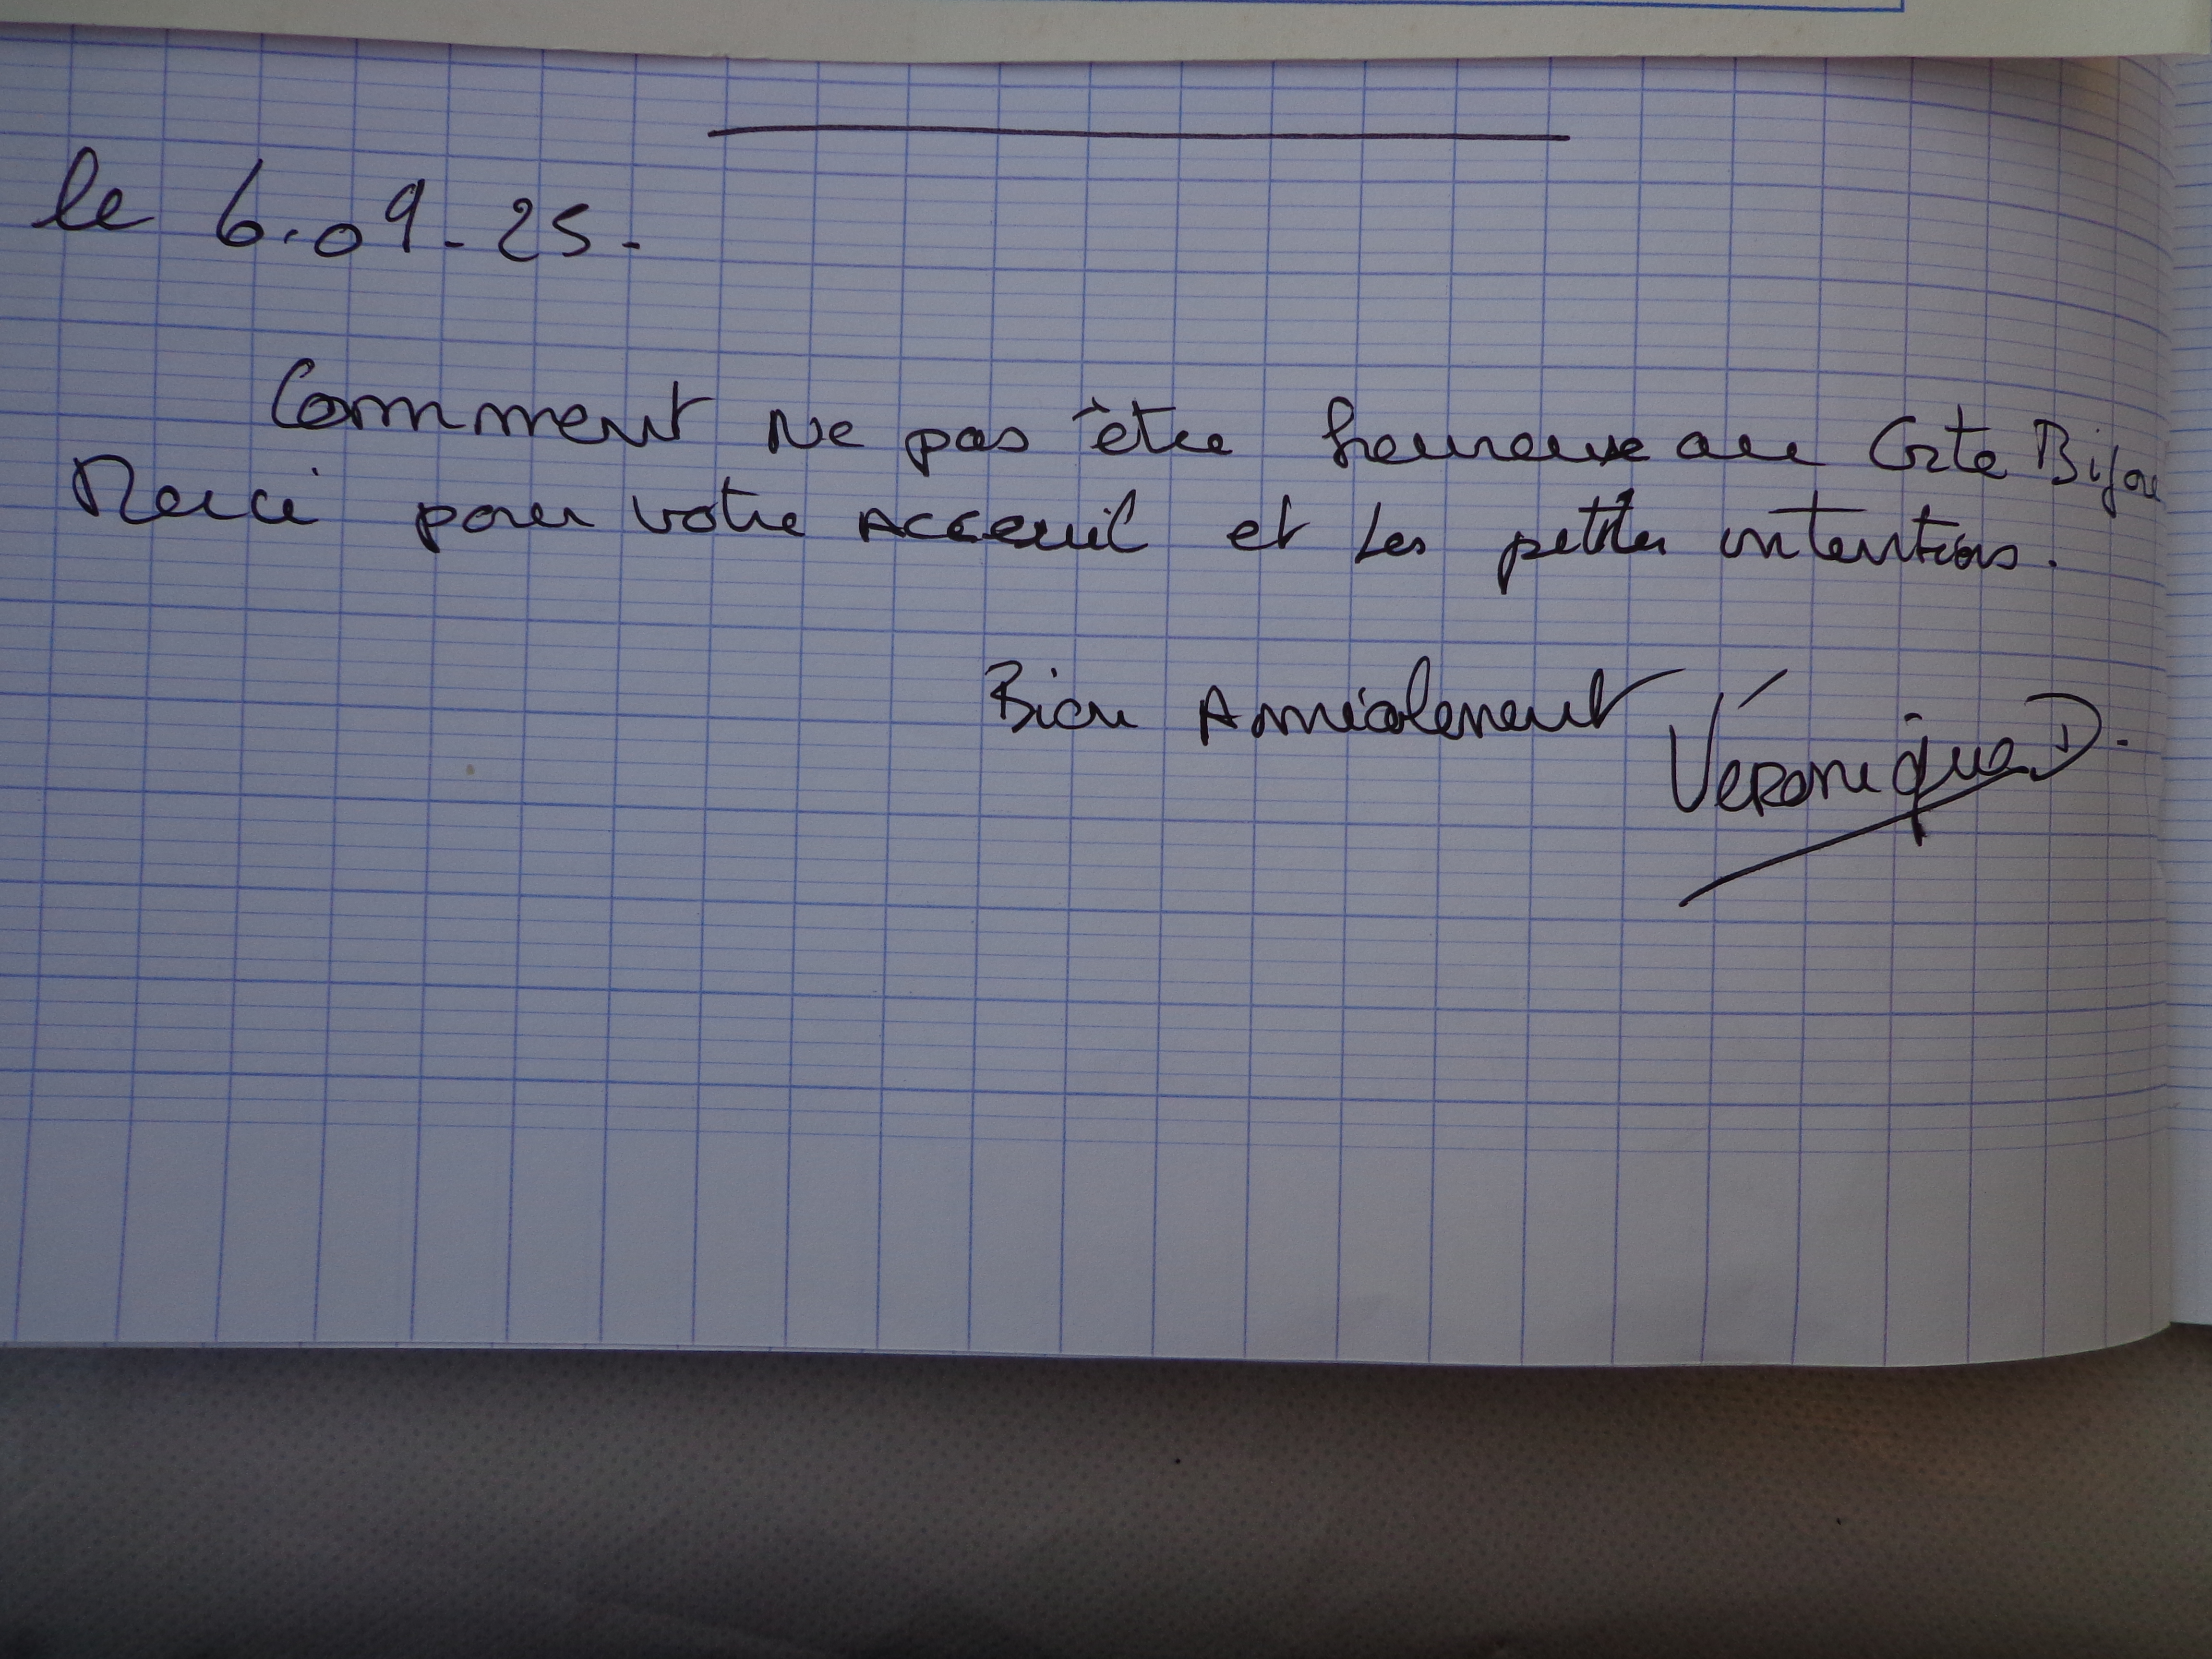 le 6.09-25-
Comment Ne pas être heureuse au Gîte Bijou
Merci pour votre Acceuil et Les petites intentions.
Bien Amicalement
Véronique D.